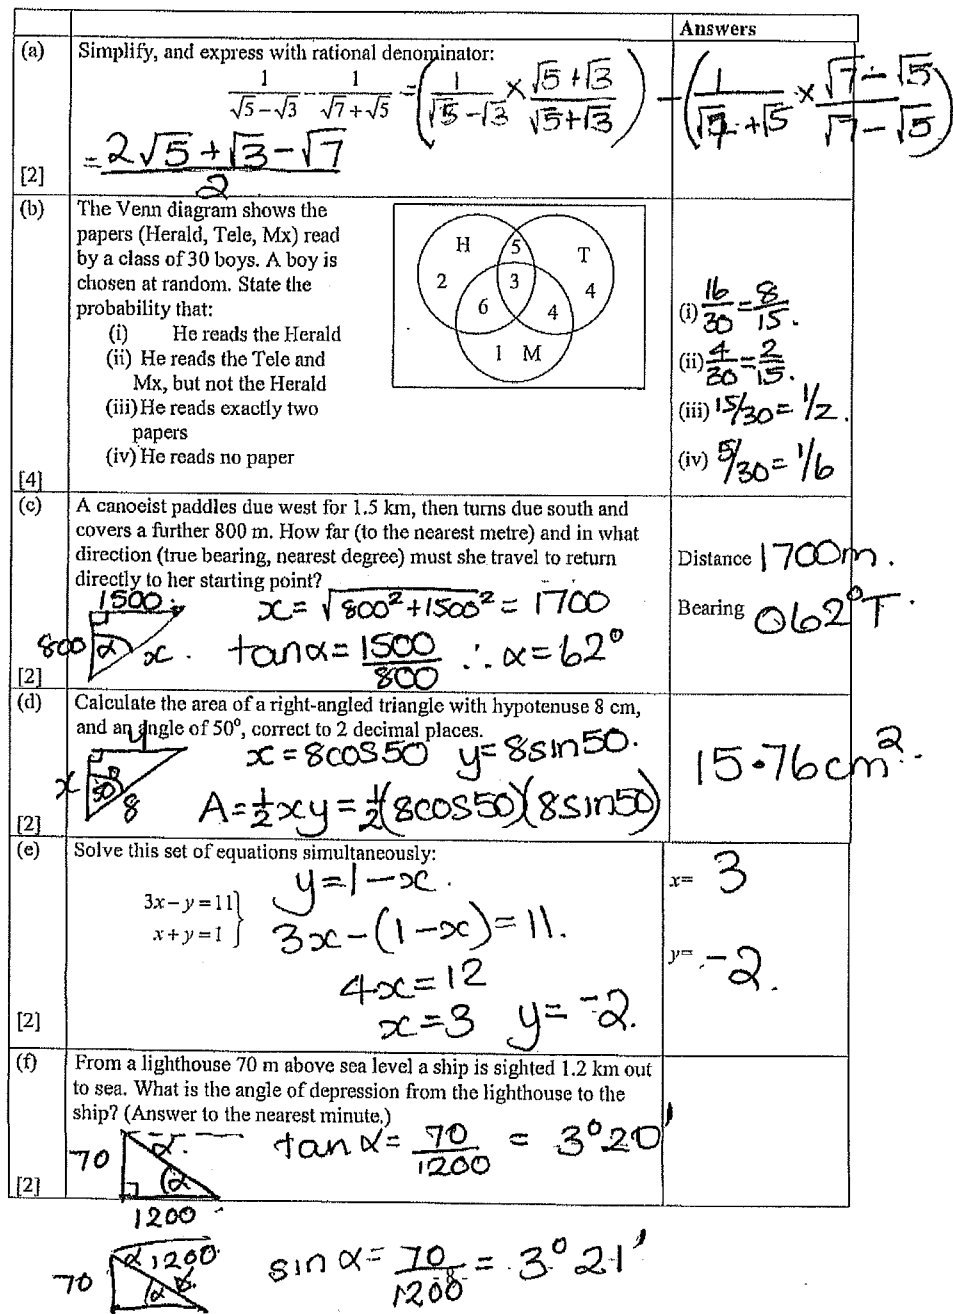 Answers
(a) Simplify, and express with rational denominator:
1/(√5−√3) − 1/(√7+√5) = (1/(√5−√3) × (√5+√3)/(√5+√3)) − (1/(√7+√5) × (√7−√5)/(√7−√5))
= (2√5+√3−√7)/2
[2]
(b) The Venn diagram shows the
papers (Herald, Tele, Mx) read
by a class of 30 boys. A boy is
chosen at random. State the
probability that:
(i) He reads the Herald
(ii) He reads the Tele and
Mx, but not the Herald
(iii) He reads exactly two
papers
(iv) He reads no paper
[4]
H 5 T
2 3 4
6 4
1 M
(i) 16/30 = 8/15.
(ii) 4/30 = 2/15.
(iii) 15/30 = 1/2.
(iv) 5/30 = 1/6
(c) A canoeist paddles due west for 1.5 km, then turns due south and
covers a further 800 m. How far (to the nearest metre) and in what
direction (true bearing, nearest degree) must she travel to return
directly to her starting point?
1500
800 α x.
x = √(800²+1500²) = 1700
tanα = 1500/800 ∴ α = 62°
[2]
Distance 1700m.
Bearing 062°T.
(d) Calculate the area of a right-angled triangle with hypotenuse 8 cm,
and an angle of 50°, correct to 2 decimal places.
y
x 50° 8
x = 8cos50 y = 8sin50.
A = ½xy = ½(8cos50)(8sin50)
[2]
15.76cm².
(e) Solve this set of equations simultaneously:
3x − y = 11
x + y = 1 }
y = 1 − x.
3x − (1 − x) = 11.
4x = 12
x = 3 y = −2.
[2]
x= 3
y= −2.
(f) From a lighthouse 70 m above sea level a ship is sighted 1.2 km out
to sea. What is the angle of depression from the lighthouse to the
ship? (Answer to the nearest minute.)
α.
70 α
1200
tan α = 70/1200 = 3°20'
[2]
α 1200
70 α
sin α = 70/1200 = 3°21'